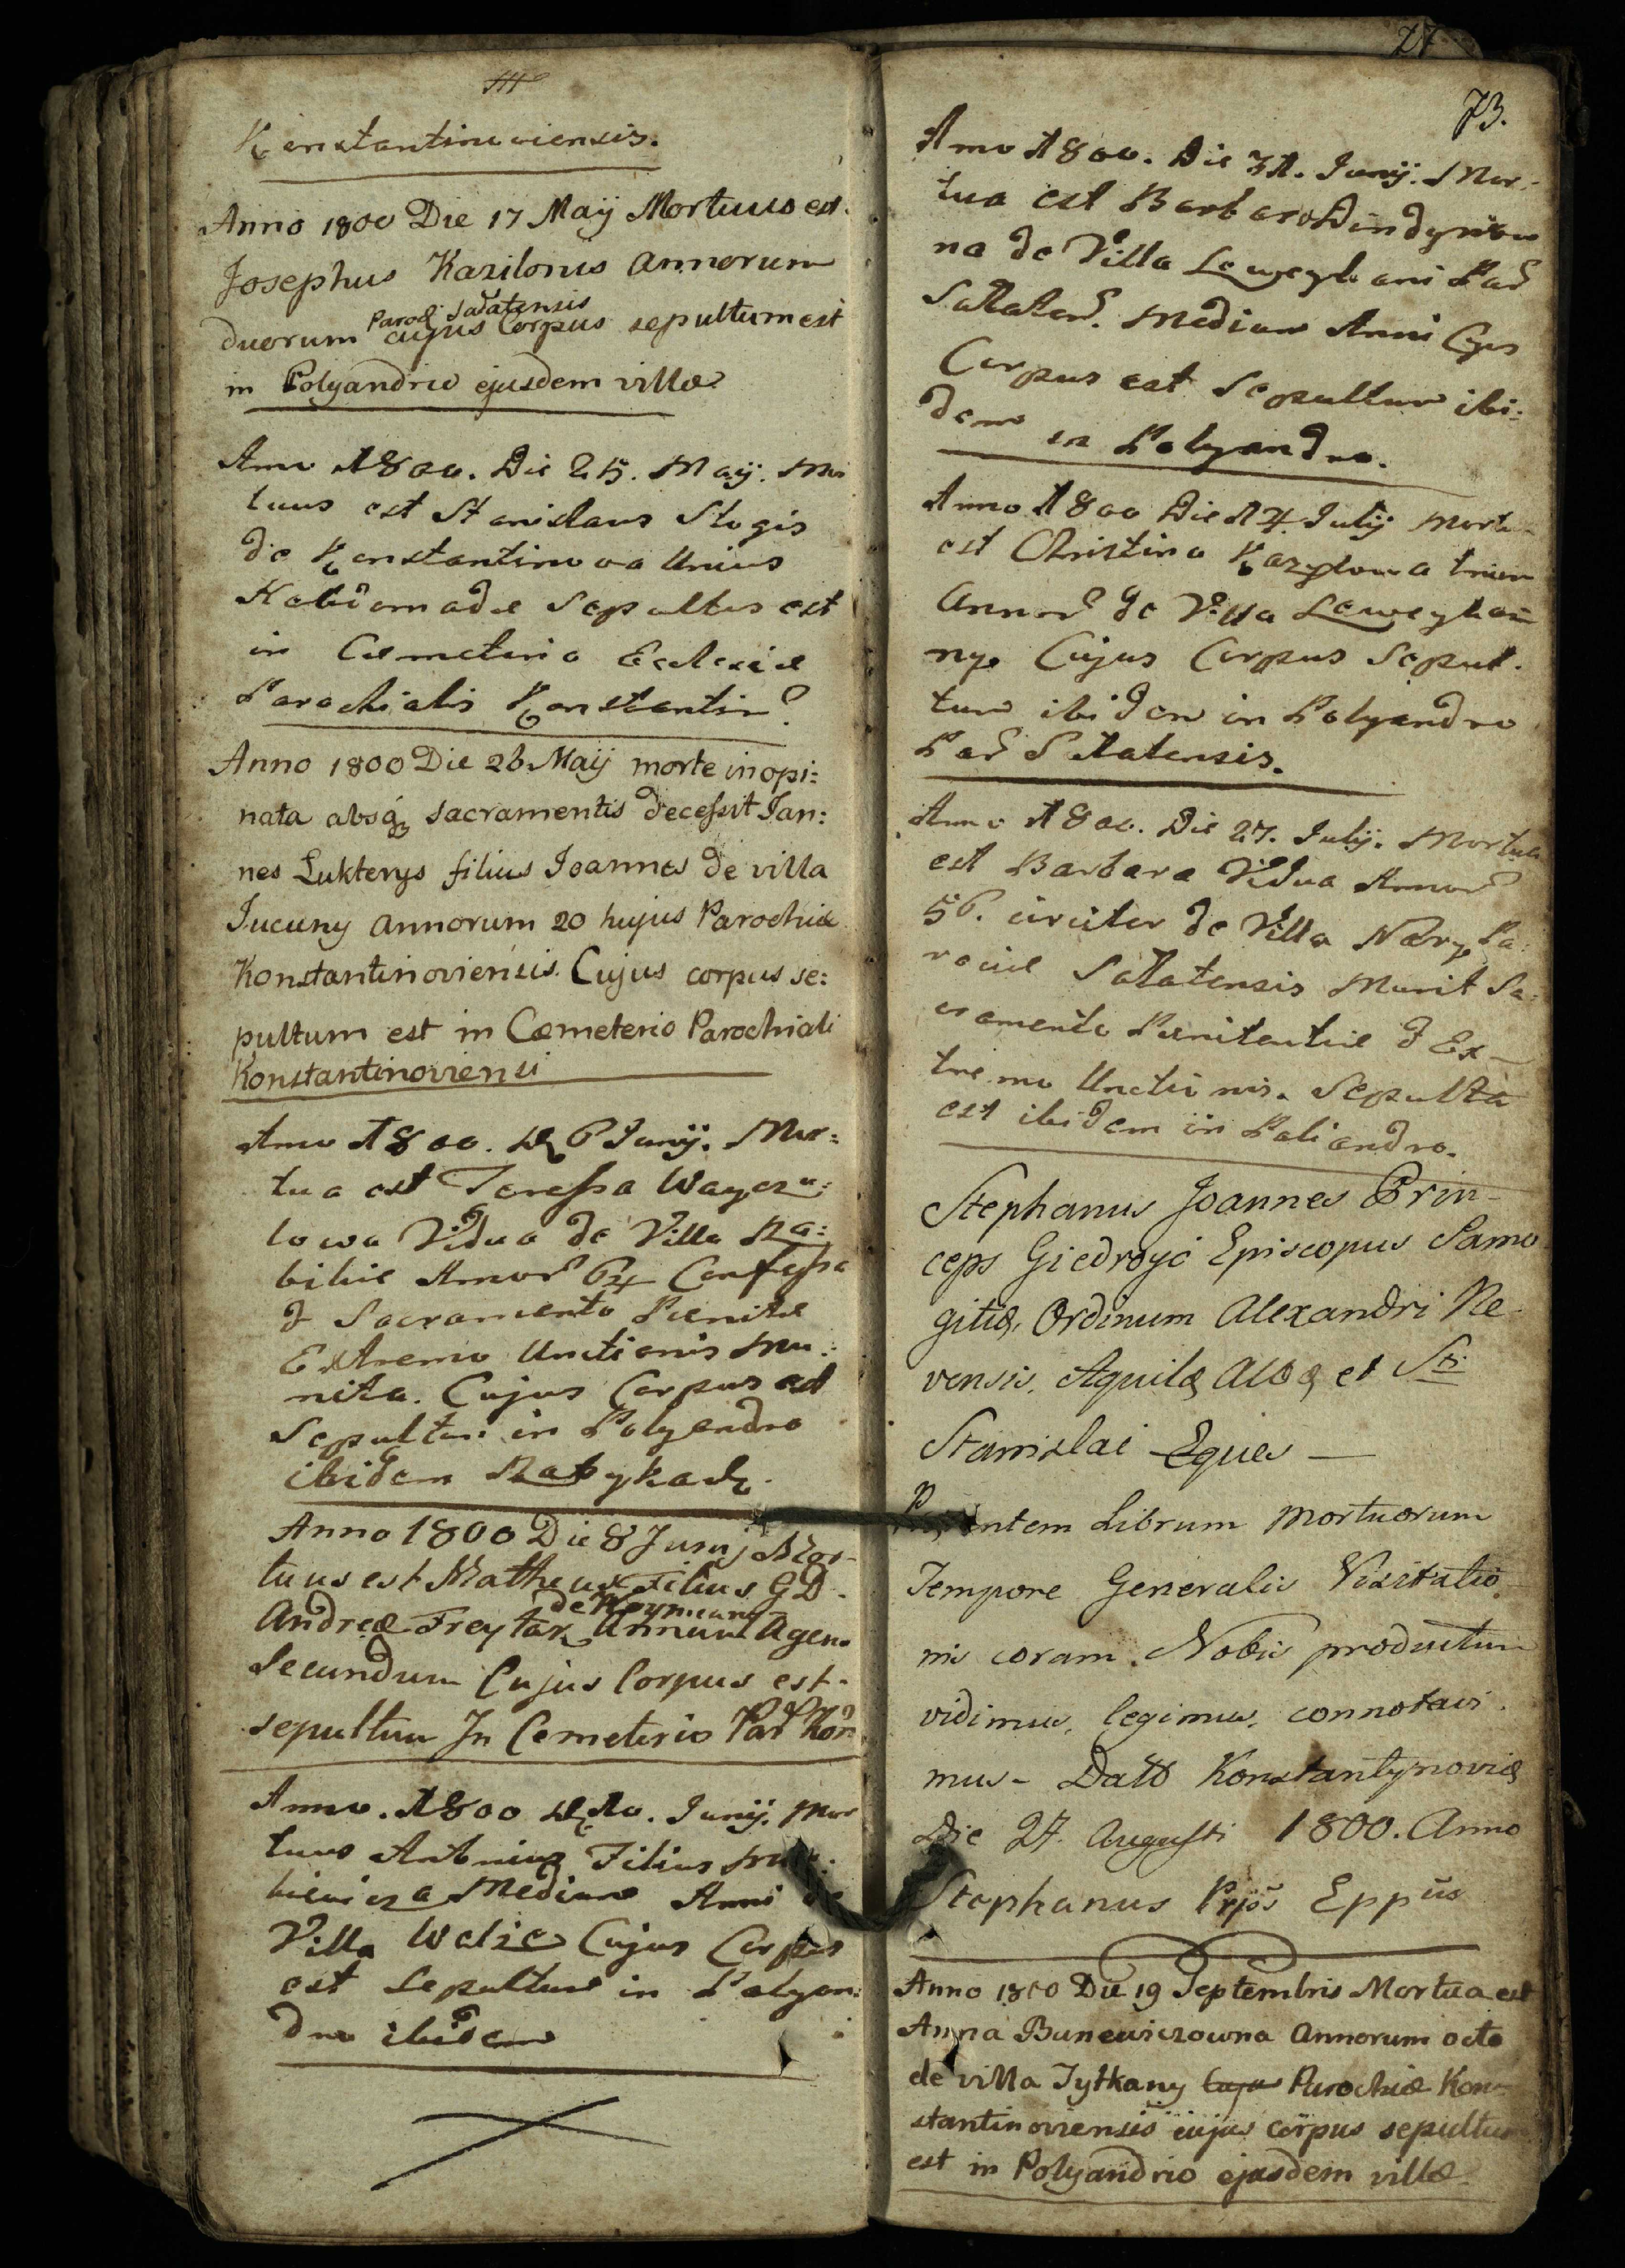 Konstantinoviensis.
Anno 1800 Die 17 Maÿ Mortuus est
Josephus Kazilonis Annorum
Paroch Sałatensis
duorum cujus Corpus sepultum est
in Polyandrio ejusdem villæ
Anno 1800. Die 25. Maÿ. Mor
tuus est Stanislaus Stugis
de Konstantinowa Unius
Hebdomadæ Sepultus est
in Cæmeterio Eclesiæ
Parochialis Konstantin
Anno 1800 Die 26 Maÿ morte inopi:
nata absq sacramentis decessit Ian:
nes Lukterys filius Ioannes de villa
Jucuny Annorum 20 hujus Parochiæ
Konstantinoviensis. Cujus corpus se:
pultum est in Cæmeterio Parochiali
Konstantinoviensi
Anno 1800. D 6 Iunÿ. Mor:
tua est Teressa Wayczu:
lowa Vidua de Villa Ra:
bikie Annor 64 Confessa
& Sacramento Pænitæ
Extremo Unctionis mu:
nita. Cujus Corpus est
Sepultum in Polyandro
ibidem Rabykach.
Anno 1800 Die 8 Junÿ Mor-
tuus est Matheus Filius GD.
de Noymeuny
Andreæ Freytak Annum Agens
Secundum Cujus Corpus est
sepultum In Cemeterio Par Kon
Anno. 1800 D 10. Iunÿ. Mor
tuus Antonius Filius
Medium Anni de
Villa Welże Cujus Corpus
est Sepultum in Polyan:
dro ibidem
27
73.
Anno 1800. Die 31. Iunÿ. Mor:
tua est Barbara Dindynow
na de Villa Leweyk ani Par
Sałaten. Medium Anni Cujus
Corpus est Sepultum ibi:
dem in Polyandro.
Anno 1800 Die 14 Iulÿ Mortu
est Christina Kazylowa trium
Annor de Villa Leweyka
nye Cujus Corpus Sepul.
tum ibidem in Polyandro
Par Sałatensis.
Anno 1800. Die 27. Iulÿ. Mortua
est Barbara Vidua Annor
56. circiter de Villa Nory Pa:
rociæ Sałatensis Munit Sa:
cramento Pænitentiæ & Ex-
tremo Unctionis. Sepulta
est ibidem in Poliandro.
Stephanus Joannes Prin-
ceps Giedroyć Episcopus Samo
gitiæ, Ordinum Alexandri Ne-
vensis, Aquilæ Albæ et Sti
Stanislai Eques —
Præsentem Librum Mortuorum
Tempore Generalis Visitatio
nis coram Nobis productum
vidimus, legimus, connotavi
mus - Datt Konstantynoviæ
Die 27. Augusti 1800. Anno
Stephanus Prps Eppus
Anno 1800 Die 19 Septembris Mortua est
Anna Bunewiczowna Annorum octo
de villa Jytkany cuju Parochiæ Kon-
stantinoviensis cujus corpus sepultum
est in Polyandrio ejusdem villæ